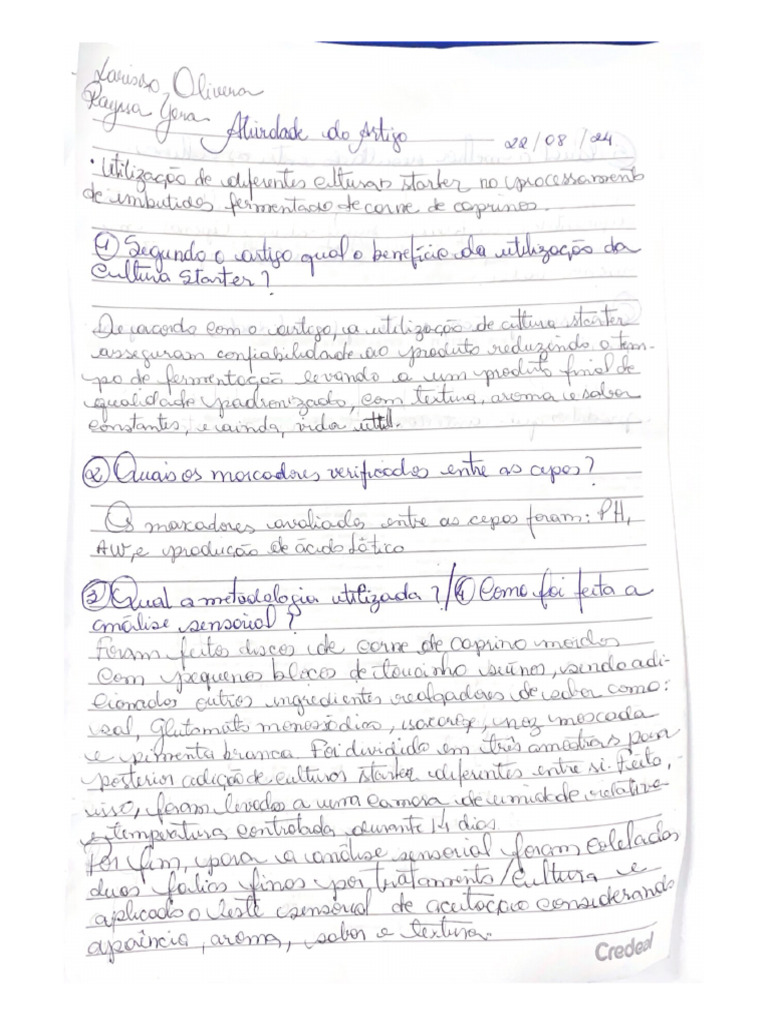 Larissa Oliveira
Rayssa Yona
Atividade do Artigo 22/08/24
• Utilização de diferentes culturas starter no processamento
de embutidos fermentado de carne de caprinos.
① Segundo o artigo qual o benefício da utilização da
Cultura Starter?
De acordo com o artigo, a utilização de cultura stárter
asseguram confiabilidade ao produto reduzindo o tem-
po de fermentação levando a um produto final de
qualidade padronizado, com textura, aroma e sabor
constantes, e ainda, vida útil.
② Quais os marcadores verificados entre as cepas?
Os marcadores avaliados entre as cepas foram: PH,
AW, e produção de ácido lático
③ Qual a metodologia utilizada? / ④ Como foi feita a
análise sensorial?
Foram feitos discos de carne de caprino moídos
com pequenos blocos de toucinho suínos, sendo adi-
cionados outros ingredientes realçadores de sabor como:
sal, Glutamato monossódios, sacarose, noz moscada
e pimenta branca. Foi dividido em três amostras para
posterior adição de culturas starter diferentes entre si. Feito,
isso, foram levados a uma camara de umidade relativa
e temperatura controlada durante 14 dias.
Por fim, para a análise sensorial foram coletadas
duas fatias finas por tratamento/cultura e
aplicado o teste sensorial de aceitação considerando
apaência, aroma, sabor e textura.
Credeal